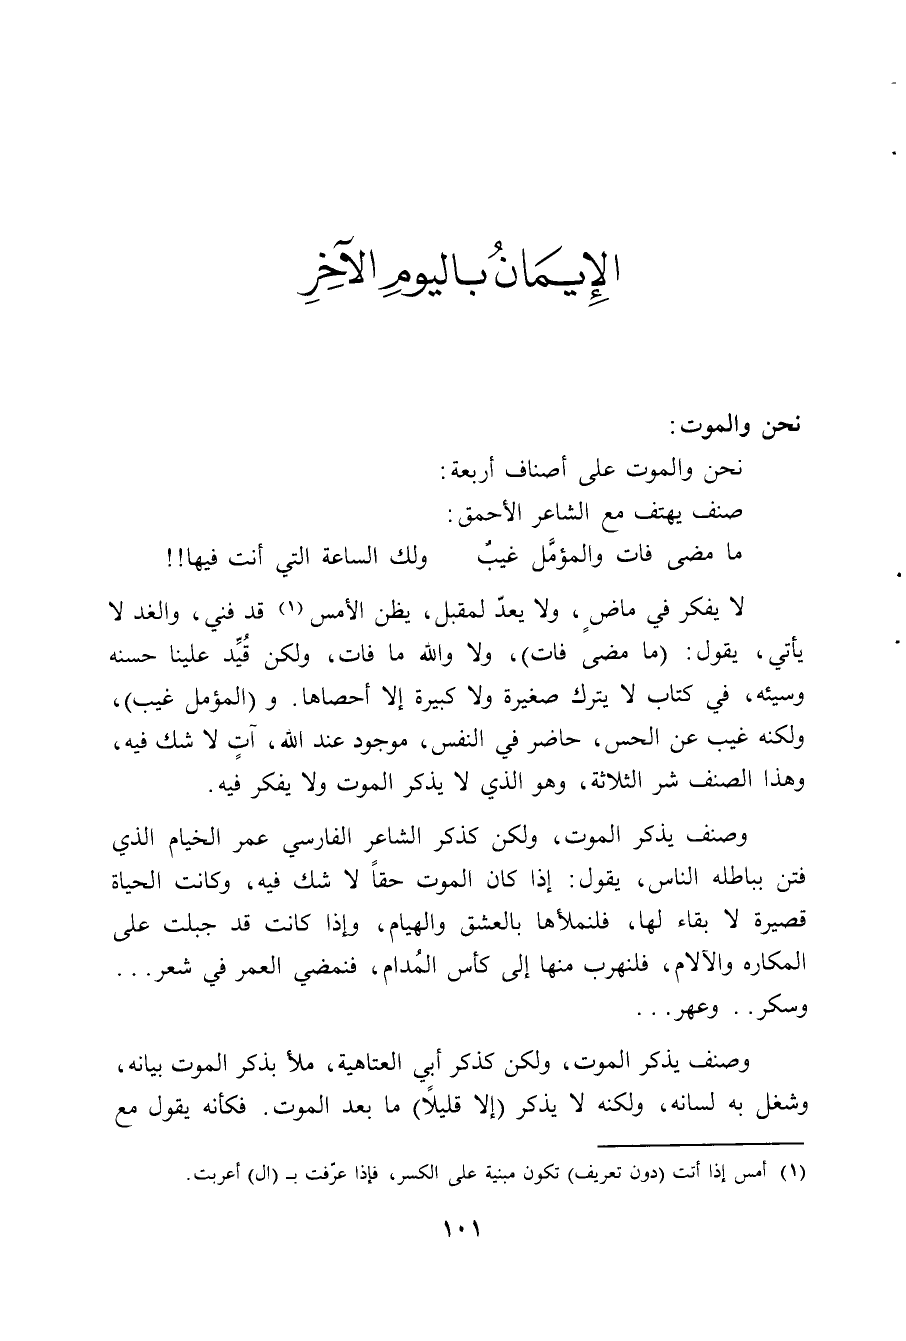 الإِيمَانُ بِاليومِ الآخِرِ
نحن والموت:
نحن والموت على أصناف أربعة:
صنف يهتف مع الشاعر الأحمق:
ما مضى فات والمؤمَّل غيبٌ ولك الساعة التي أنت فيها!!
لا يفكر في ماضٍ، ولا يعدّ لمقبل، يظن الأمس (١) قد فني، والغد لا
يأتي، يقول: (ما مضى فات)، ولا والله ما فات، ولكن قُيِّد علينا حسنه
وسيئه، في كتاب لا يترك صغيرة ولا كبيرة إلا أحصاها. و (المؤمل غيب)،
ولكنه غيب عن الحس، حاضر في النفس، موجود عند الله، آتٍ لا شك فيه،
وهذا الصنف شر الثلاثة، وهو الذي لا يذكر الموت ولا يفكر فيه.
وصنف يذكر الموت، ولكن كذكر الشاعر الفارسي عمر الخيام الذي
فتن بباطله الناس، يقول: إذا كان الموت حقاً لا شك فيه، وكانت الحياة
قصيرة لا بقاء لها، فلنملأها بالعشق والهيام، وإذا كانت قد جبلت على
المكاره والآلام، فلنهرب منها إلى كأس المُدام، فنمضي العمر في شعر...
وسكر.. وعهر...
وصنف يذكر الموت، ولكن كذكر أبي العتاهية، ملأ بذكر الموت بيانه،
وشغل به لسانه، ولكنه لا يذكر (إلا قليلًا) ما بعد الموت. فكأنه يقول مع
(١) أمس إذا أتت (دون تعريف) تكون مبنية على الكسر، فإذا عرّفت بـ (ال) أعربت.
١٠١